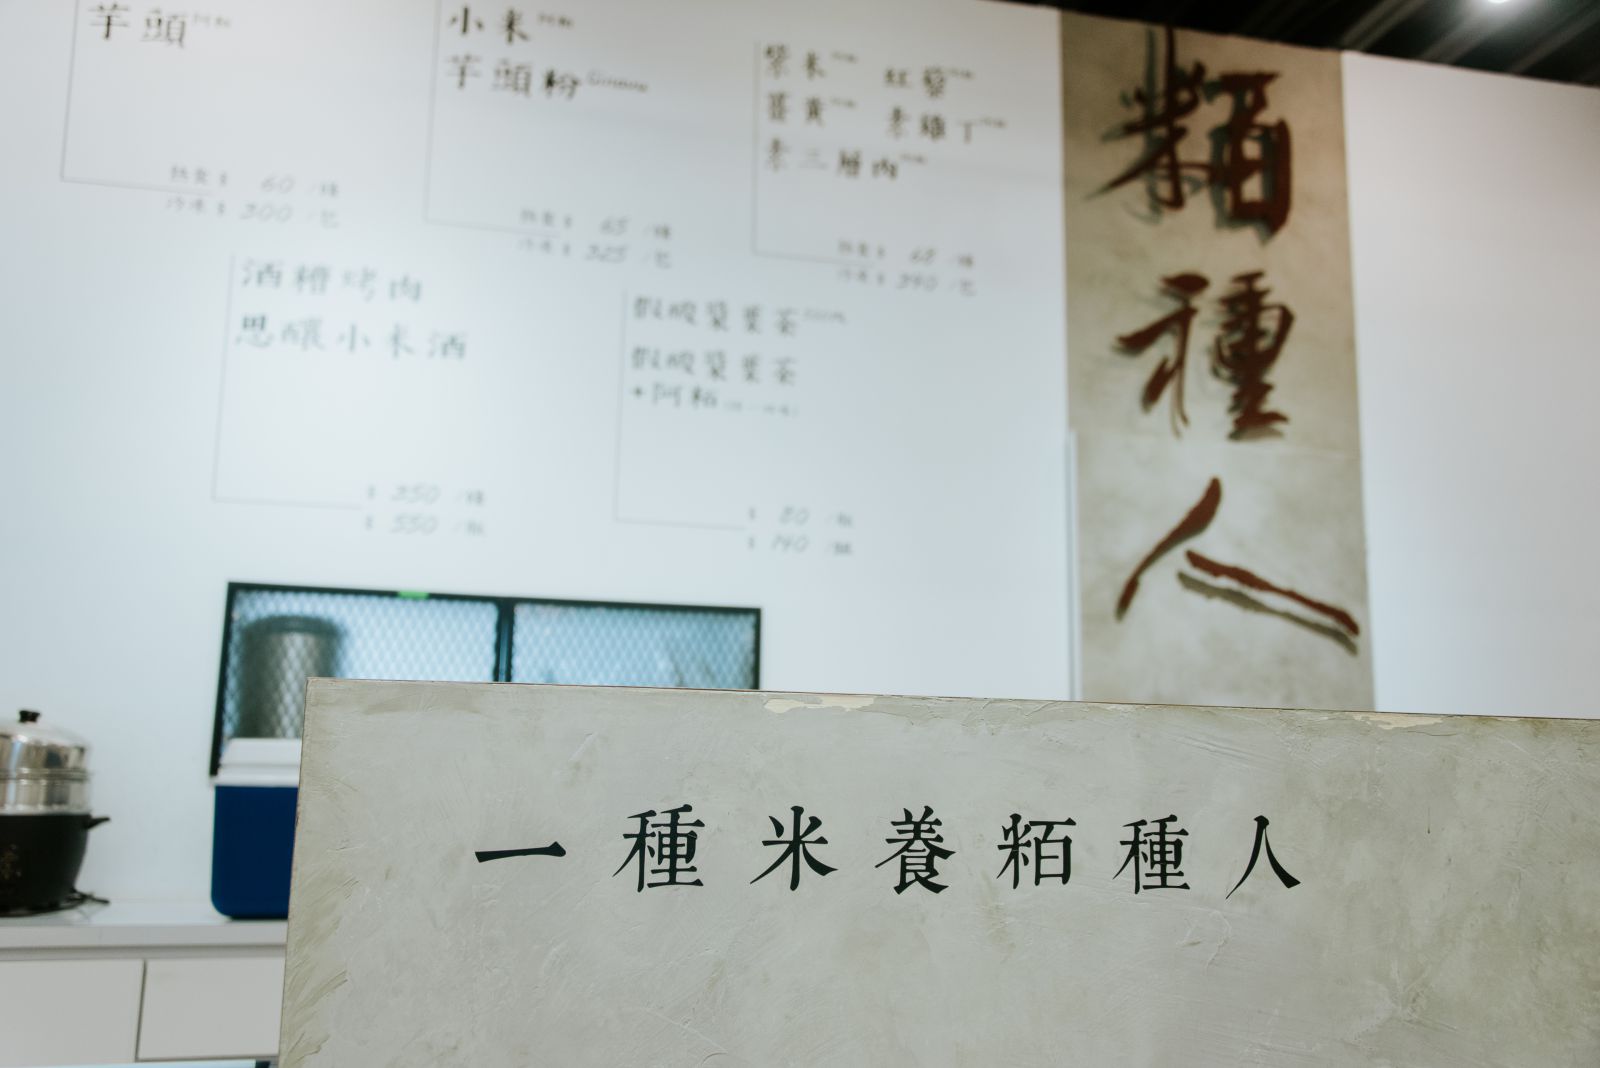 芋頭阿粨
60 /條
200 /包
小米阿粨
芋頭粉
65 /條
325 /包
紫米 紅藜
薑黃 素雞丁
素三層肉
68 /條
340 /包
酒糟烤肉
思釀小米酒
$ 250 /條
$ 550 /瓶
假酸漿葉茶
假酸漿葉茶
+阿粨
$ 80 /瓶
$ 140 /組
粨種人
一種米養粨種人